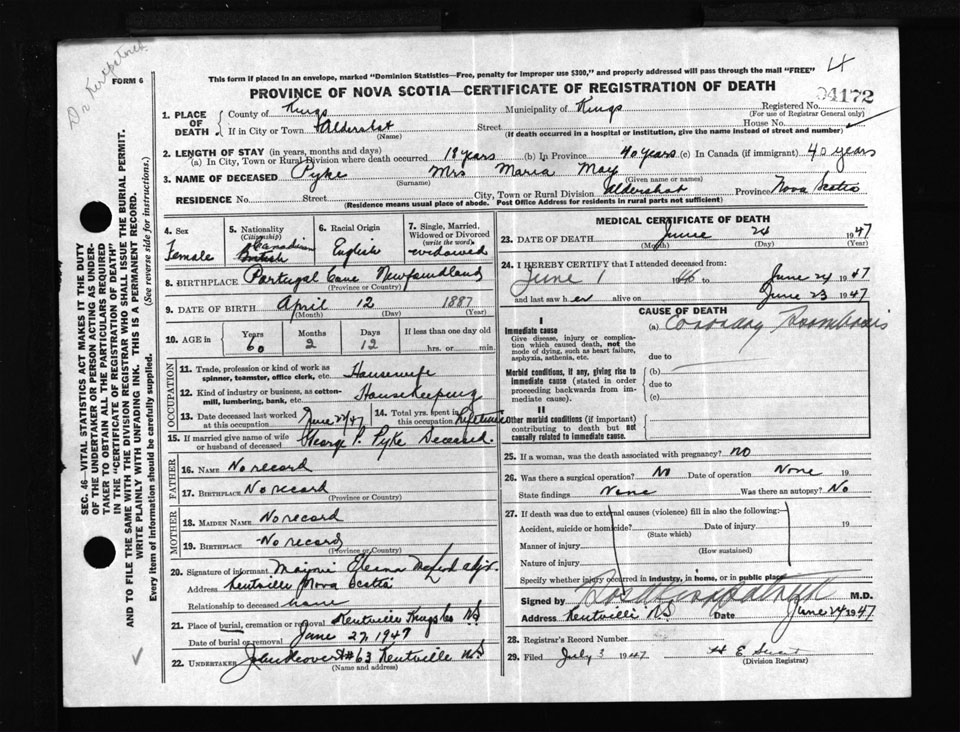 Dr Kirkpatrick
4
FORM 6
This form if placed in an envelope, marked "Dominion Statistics—Free, penalty for improper use $300," and properly addressed will pass through the mail "FREE"
PROVINCE OF NOVA SCOTIA—CERTIFICATE OF REGISTRATION OF DEATH
1. PLACE OF DEATH County of Kings Municipality of Kings Registered No. 04172
(For use of Registrar General only)
If in City or Town Aldershot (Name) Street House No.
(If death occurred in a hospital or institution, give the name instead of street and number)
2. LENGTH OF STAY (in years, months and days)
(a) In City, Town or Rural Division where death occurred 19 years (b) In Province 40 years (c) In Canada (if immigrant) 40 years
3. NAME OF DECEASED Pyke Mrs Maria May
(Surname) (Given name or names)
RESIDENCE No. Street City, Town or Rural Division Aldershot Province Nova Scotia
(Residence means usual place of abode. Post Office Address for residents in rural parts not sufficient)
4. Sex Female
5. Nationality (Citizenship) Canadian British
6. Racial Origin English
7. Single, Married, Widowed or Divorced (write the word) widowed
8. BIRTHPLACE Portugal Cove Newfoundland
(Province or Country)
9. DATE OF BIRTH April 12 1887
(Month) (Day) (Year)
10. AGE in Years 60 Months 2 Days 12 If less than one day old hrs. or min.
OCCUPATION
11. Trade, profession or kind of work as spinner, teamster, office clerk, etc. Housewife
12. Kind of industry or business, as cotton-mill, lumbering, bank, etc. Housekeeping
13. Date deceased last worked at this occupation June 23/47 14. Total yrs. spent in this occupation Lifetime
15. If married give name of wife or husband of deceased George P. Pyke Deceased.
FATHER
16. NAME No record
17. BIRTHPLACE No record
(Province or Country)
MOTHER
18. MAIDEN NAME No record
19. BIRTHPLACE No record
(Province or Country)
20. Signature of informant
Address Kentville Nova Scotia
Relationship to deceased
21. Place of burial, cremation or removal Kentville Kings Co NS
Date of burial or removal June 27, 1947
22. UNDERTAKER #63 Kentville NS
(Name and address)
MEDICAL CERTIFICATE OF DEATH
23. DATE OF DEATH June 24 1947
(Month) (Day) (Year)
24. I HEREBY CERTIFY that I attended deceased from:
June 1 1946 to June 24 1947
and last saw her alive on June 23 1947
CAUSE OF DEATH
I
Immediate cause
Give disease, injury or complication which caused death, not the mode of dying, such as heart failure, asphyxia, asthenia, etc.
(a) Coronary Thrombosis
due to
Morbid conditions, if any, giving rise to immediate cause (stated in order proceeding backwards from immediate cause).
(b)
due to
(c)
II
Other morbid conditions (if important) contributing to death but not causally related to immediate cause.
25. If a woman, was the death associated with pregnancy? no
26. Was there a surgical operation? No Date of operation None 19
State findings None Was there an autopsy? No
27. If death was due to external causes (violence) fill in also the following:—
Accident, suicide or homicide? Date of injury 19
(State which)
Manner of injury
(How sustained)
Nature of injury
Specify whether injury occurred in industry, in home, or in public place
Signed by M.D.
Address Kentville NS Date June 24 1947
28. Registrar's Record Number
29. Filed July 3 1947
(Division Registrar)
SEC. 46—VITAL STATISTICS ACT MAKES IT THE DUTY
OF THE UNDERTAKER OR PERSON ACTING AS UNDER-
TAKER TO OBTAIN ALL THE PARTICULARS REQUIRED
IN THE "CERTIFICATE OF REGISTRATION OF DEATH"
AND TO FILE THE SAME WITH THE DIVISION REGISTRAR WHO SHALL ISSUE THE BURIAL PERMIT.
WRITE PLAINLY WITH UNFADING INK. THIS IS A PERMANENT RECORD.
Every item of information should be carefully supplied. (See reverse side for instructions.)